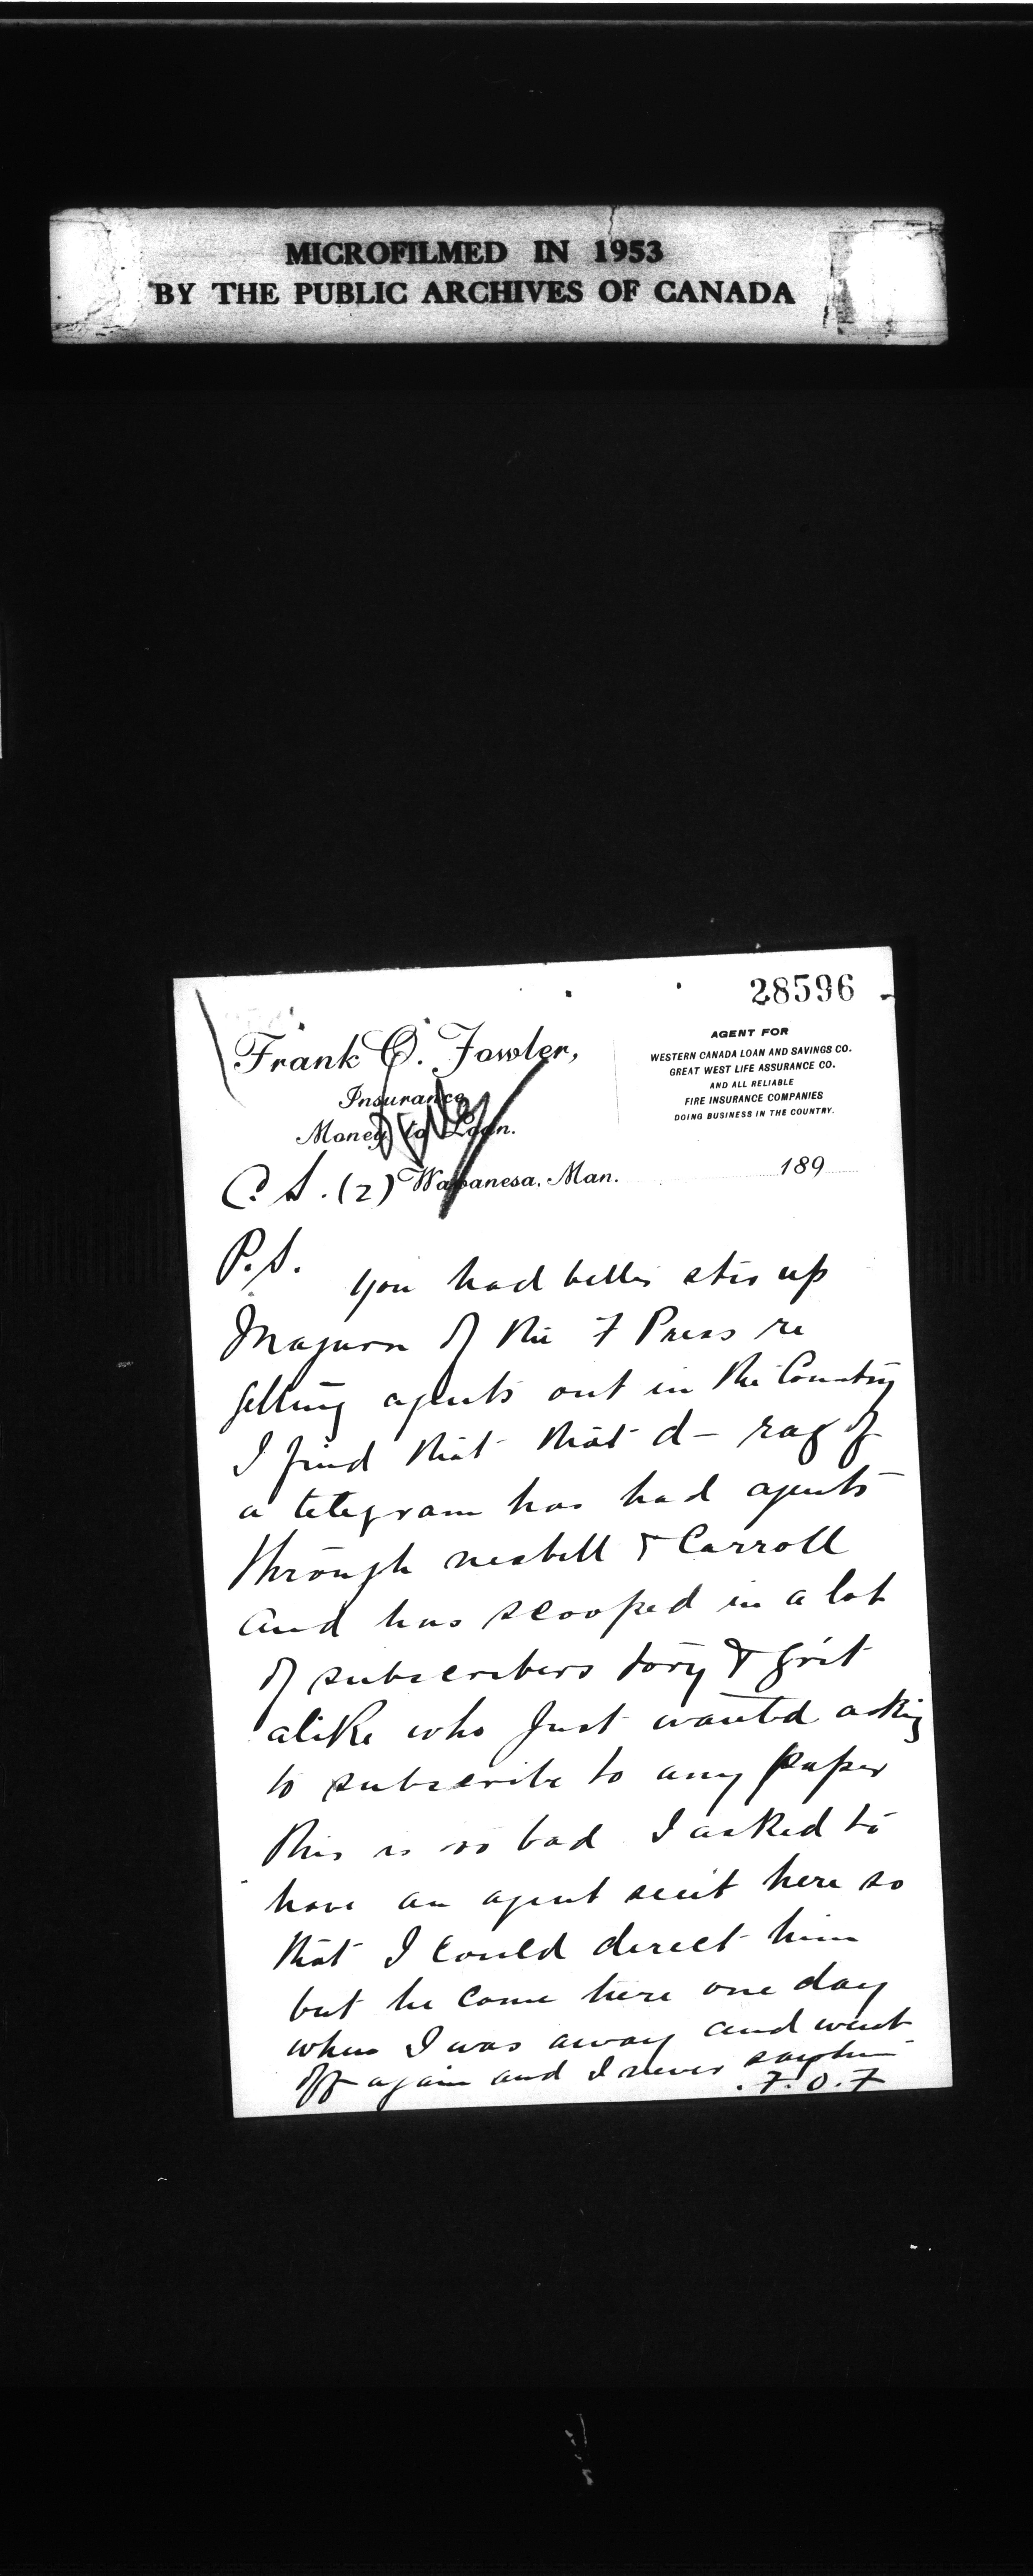 MICROFILMED IN 1953
BY THE PUBLIC ARCHIVES OF CANADA
28596
Frank O. Fowler,
Insurance
Money to Loan.
AGENT FOR
WESTERN CANADA LOAN AND SAVINGS CO.
GREAT WEST LIFE ASSURANCE CO.
AND ALL RELIABLE
FIRE INSURANCE COMPANIES
DOING BUSINESS IN THE COUNTRY.
C. S. (2) Wawanesa, Man. 189
P.S. you had better stir up
Magurn of the F Press re
getting agents out in the Country
I find that that d— rag of
a telegram has had agents
through nesbitt & Carroll
and has scooped in a lot
of subscribers tory & grit
alike who Just wanted asking
to subscribe to any paper
This is so bad I asked to
have an agent sent here so
that I could direct him
but he came here one day
when I was away and went
off again and I never
. F. O. F